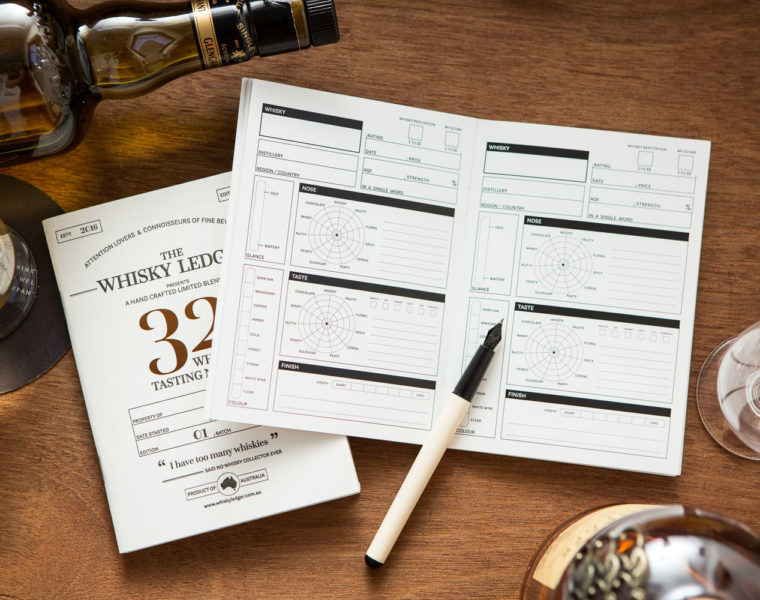 SINGLE
GLEN
ESTD 2016
EDIT
ATTENTION LOVERS & CONNOISSEURS OF FINE BE
THE
WHISKY LEDG
PRESENTS
A HAND CRAFTED LIMITED BLEN
32
WH
TASTING N
PROPERTY OF
DATE STARTED
EDITION 01 , BATCH
“ I have too many whiskies ”
SAID NO WHISKY COLLECTOR EVER
PRODUCT OF AUSTRALIA
www.whiskyledger.com.au
WHISKY
WHISKY REPUTATION MY SCORE
RATING £ TO $$ £ TO $$
DISTILLERY
DATE , PRICE
REGION / COUNTRY
AGE , STRENGTH %
IN A SINGLE WORD
OILY
WATERY
GLANCE
NOSE
WOODY
CHOCOLATE FRUITY
WINEY FLORAL
NUTTY SPICY
FEINTY CEREAL
SULPHURY PEATY
TASTE
WOODY
CHOCOLATE FRUITY
WINEY FLORAL
NUTTY SPICY
FEINTY CEREAL
SULPHURY PEATY
DARK OAK
MAHOGANY
COPPER
AMBER
GOLD
HONEY
STRAW
WHITE WINE
CLEAR
COLOUR
FINISH
LENGTH SHORT LONG
WHISKY
WHISKY REPUTATION MY SCORE
RATING £ TO $$ £ TO $$
DISTILLERY
DATE , PRICE
REGION / COUNTRY
AGE , STRENGTH %
IN A SINGLE WORD
OILY
WATERY
GLANCE
NOSE
WOODY
CHOCOLATE FRUITY
WINEY FLORAL
NUTTY SPICY
FEINTY CEREAL
SULPHURY PEATY
TASTE
WOODY
CHOCOLATE FRUITY
WINEY FLORAL
NUTTY SPICY
FEINTY CEREAL
SULPHURY PEATY
DARK OAK
MAHOGANY
COPPER
WHITE WINE
CLEAR
COLOUR
FINISH
LENGTH SHORT LONG